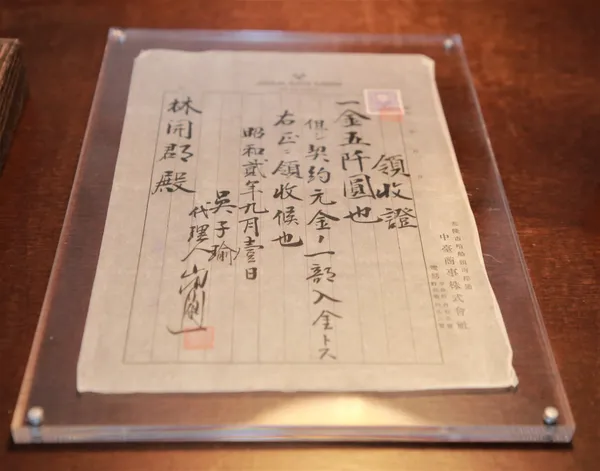 領收證
一金五阡圓也
但シ契約元金ノ一部入金トス
右正ニ領收候也
昭和貳年九月壹日
吳子瑜
代理人
林開郡殿
中臺商事株式會社